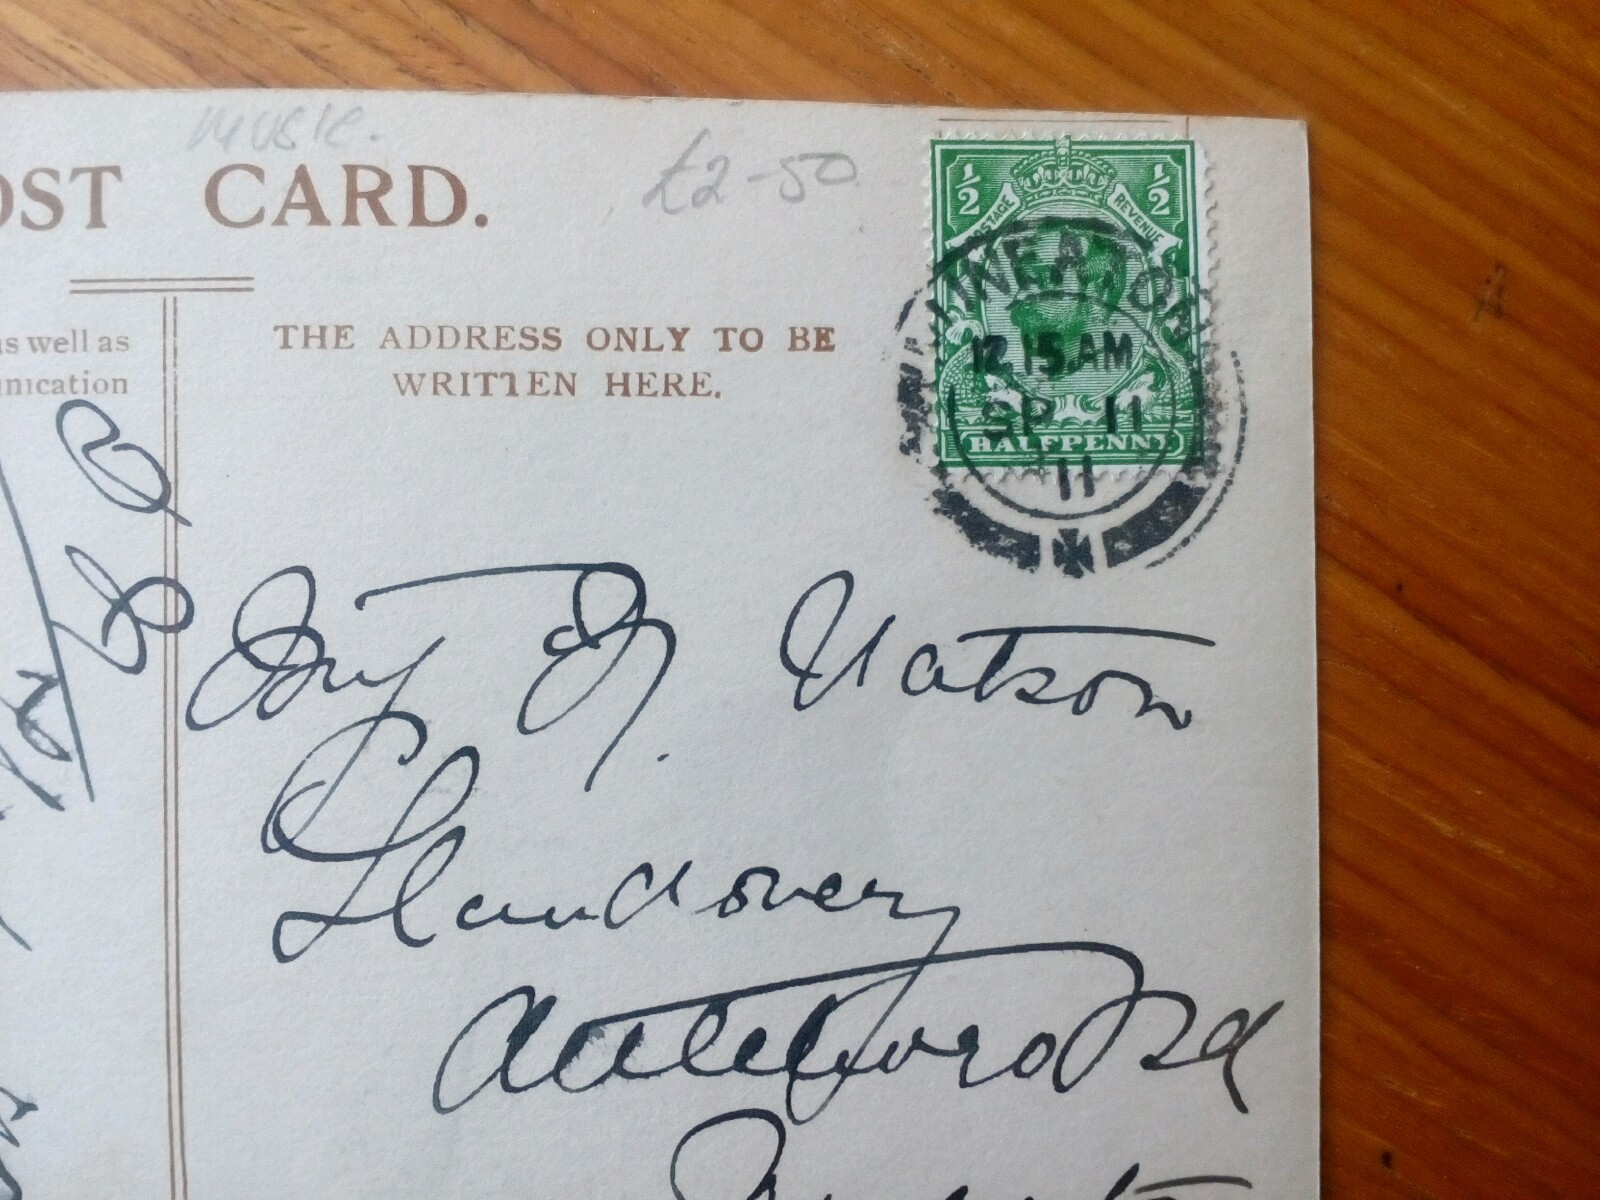 music.
OST CARD.
£2-50
½ ½
POSTAGE REVENUE
NUNEATON
12 15 AM
SP 11
11
HALFPENNY
as well as
unication
THE ADDRESS ONLY TO BE
WRITTEN HERE.
Watson
Llandovery
Attleboro Rd